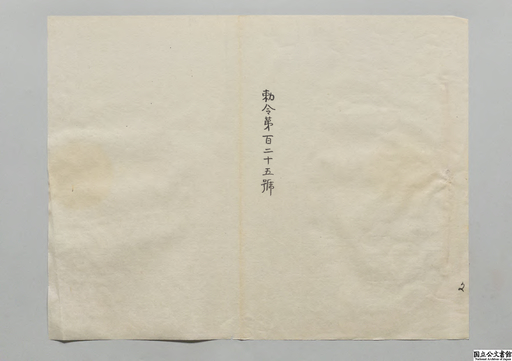 勅令第百二十五號
2
国立公文書館
National Archives of Japan